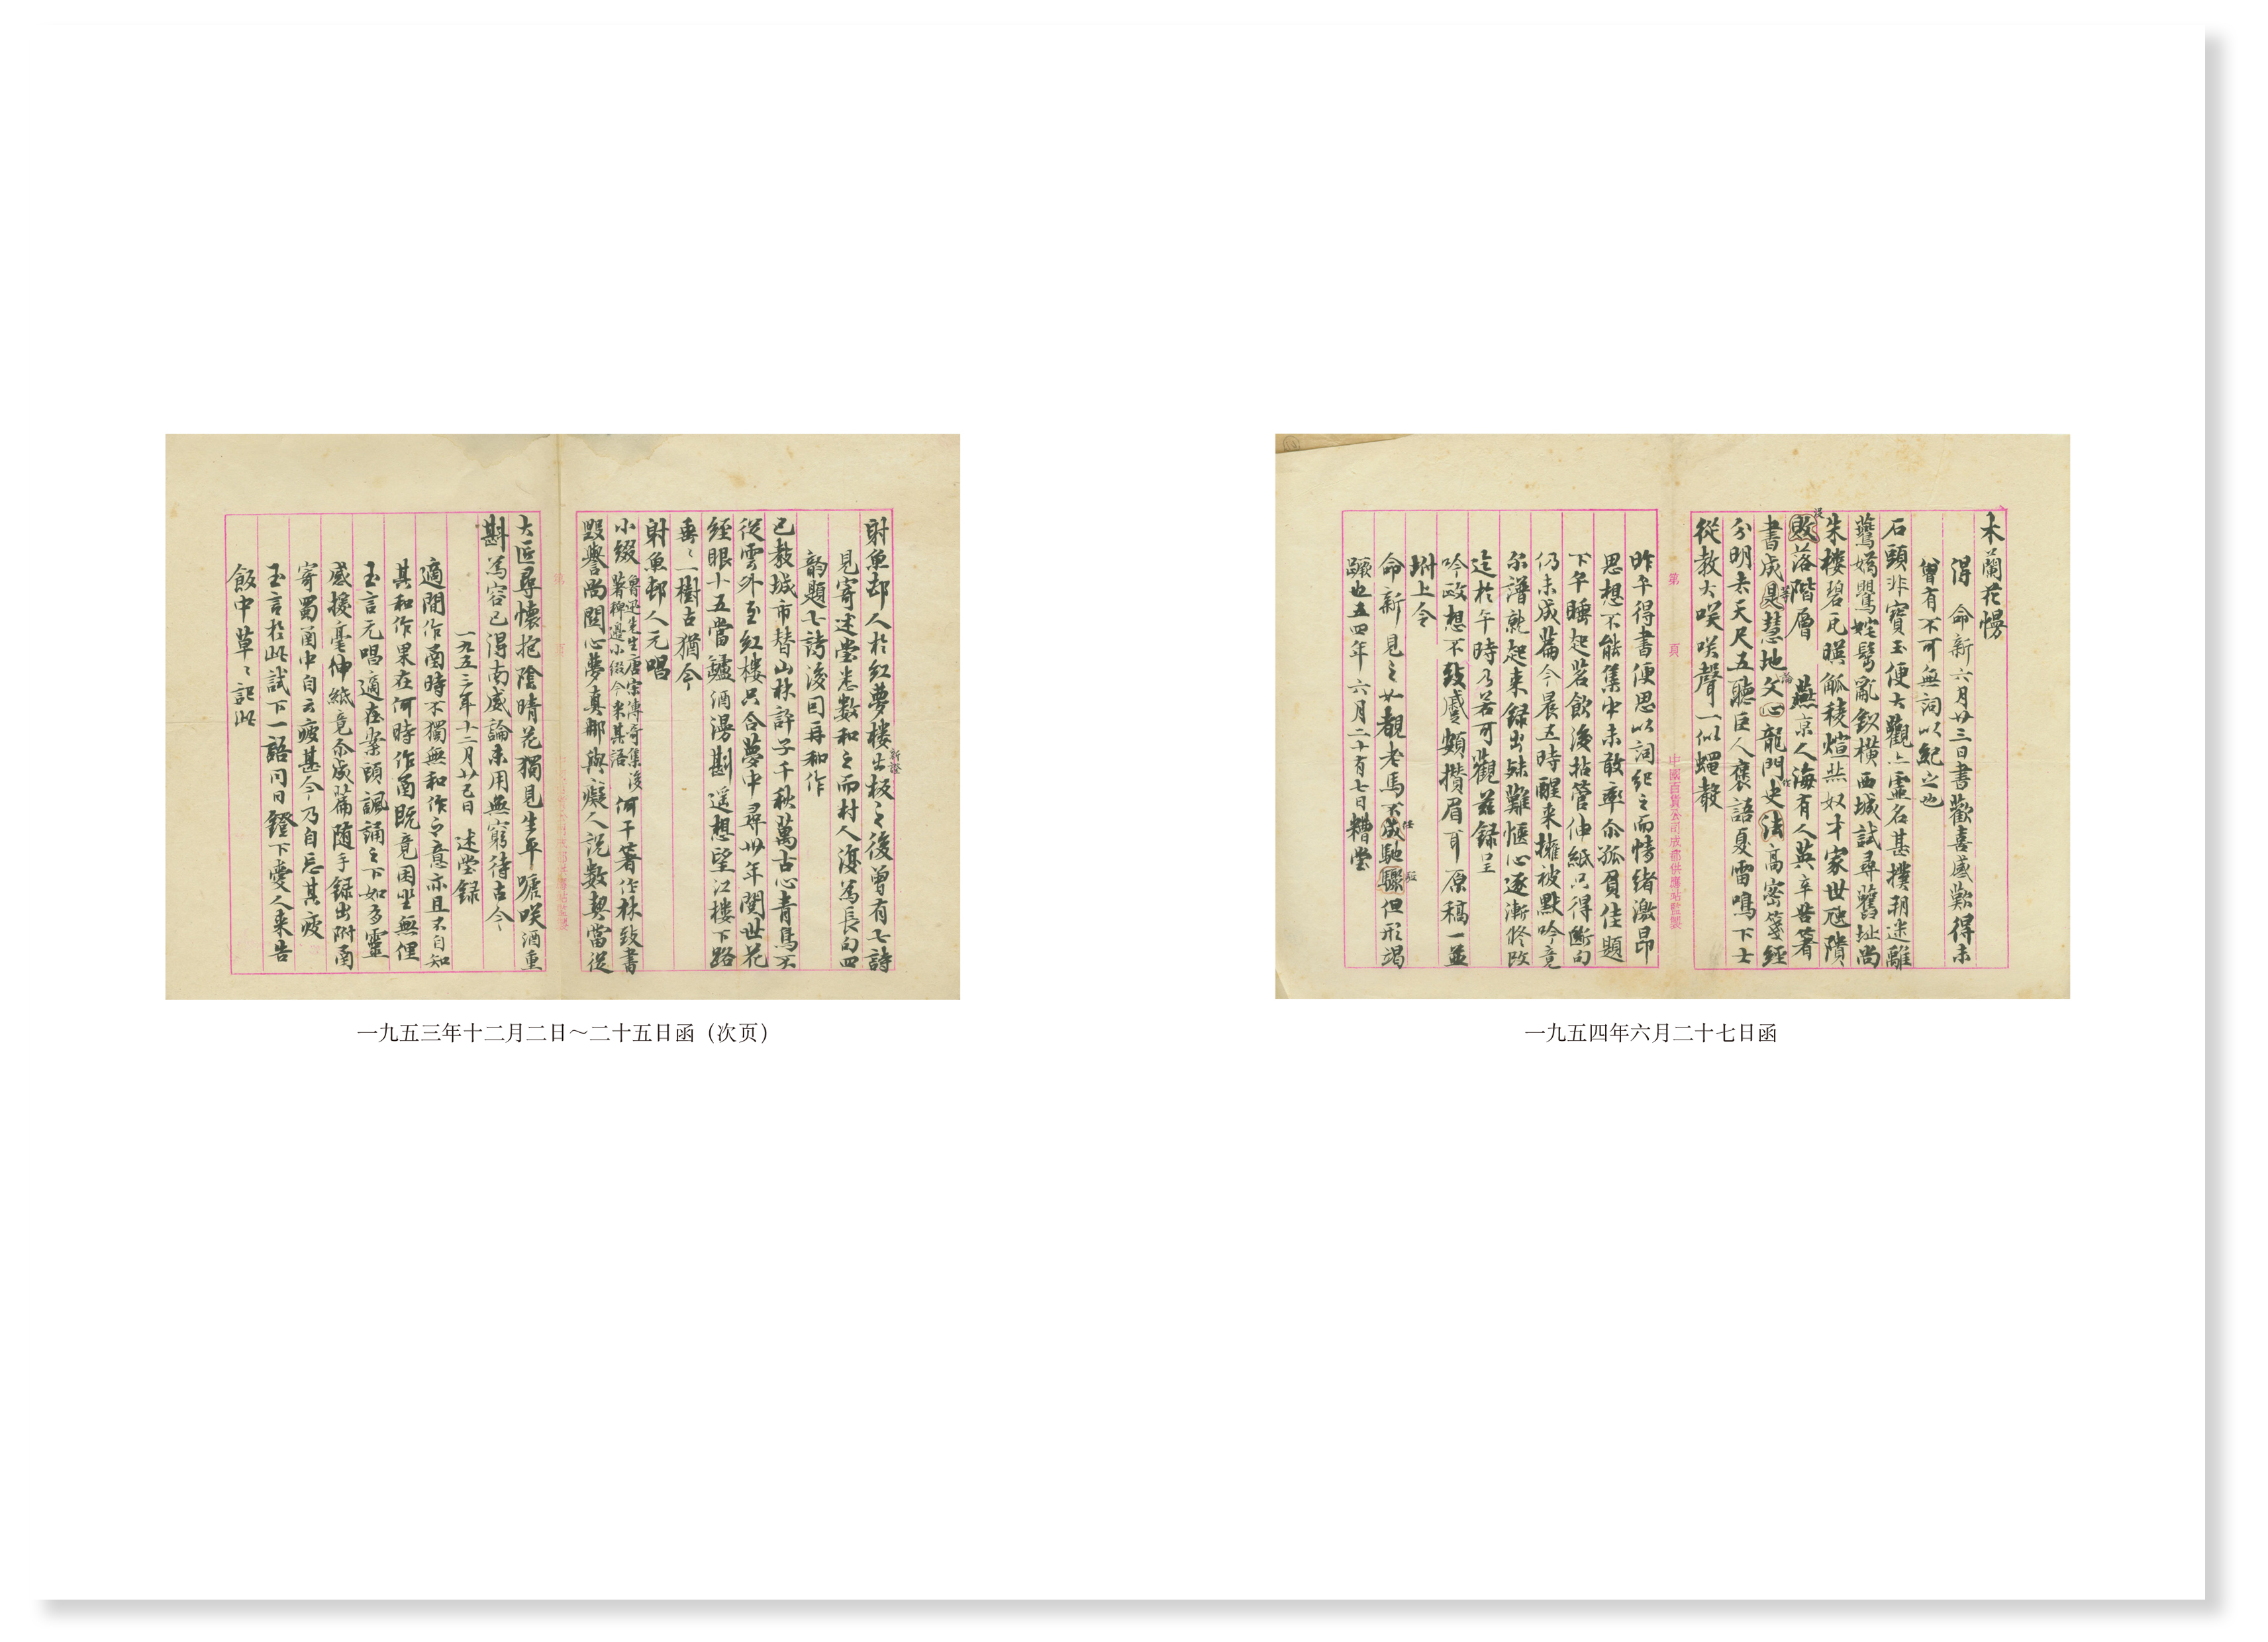 射魚邨人於紅夢樓新證出板之後曾有七詩
見寄述堂悉數和之而村人復為長句四
韵題七詩後囙再和作
已教城市替山林許子千秋萬古心青鳥不
從雲外至紅樓只合夢中尋卅年閱世花
經眼十五當鑪酒漫斟遥想望江樓下路
垂垂一樹古猶今
射魚邨人元唱
小綴魯迅先生唐宋傳奇集後著稗邊小綴今用其語何干著作林致書
毀譽尚關心夢真那與癡人説數契當從
大匠尋懷抱陰晴花獨見生平啼咲酒重
斟為容已得南威論未用無窮待古今
一九五三年十二月廿五日 述堂録
適間作函時不獨無和作之意亦且不自知
其和作果在何時作函既竟困坐無俚
玉言元唱適在案頭諷誦之下如有靈
感援毫伸紙竟尒成篇随手録出附函
寄蜀函中自云疲甚今乃自忘其疲
玉言於此試下一語同日鐙下愛人来告
飯中草草記此
一九五三年十二月二日～二十五日函（次页）
木蘭花慢
得 命新六月廿三日書歡喜感歎得未
曾有不可無詞以紀之也
石頭非寶玉便大觀亠虛名甚撲朔迷離
鶯嬌鸎姹鬂亂釵橫西城試尋舊址尚
朱樓碧瓦暎觚稜煊赫奴才家世虺隤
没落階層 燕京人海有人英辛苦著
書成等慧地文心龍門史作高密箋經
分明去天尺五聽巨人褒語夏雷鳴下士
從教大咲咲聲一似蠅聲
昨午得書便思以詞紀之而情緒激昂
思想不能集中未敢率尒孤負佳題
下午睡起茗飲後拈管伸紙只得斷句
仍未成篇今晨五時醒来擁被默吟竟
尒譜就起来録出殊難惬心逐漸修改
迄於午時乃若可觀兹録呈
吟政想不致蹙頞攢眉耳原稿一並
坿上令
命新見之廿覩老馬不任馳驅但形竭
蹶也五四年六月二十有七日糟堂
第 頁
中國百貨公司成都供應站監製
一九五四年六月二十七日函